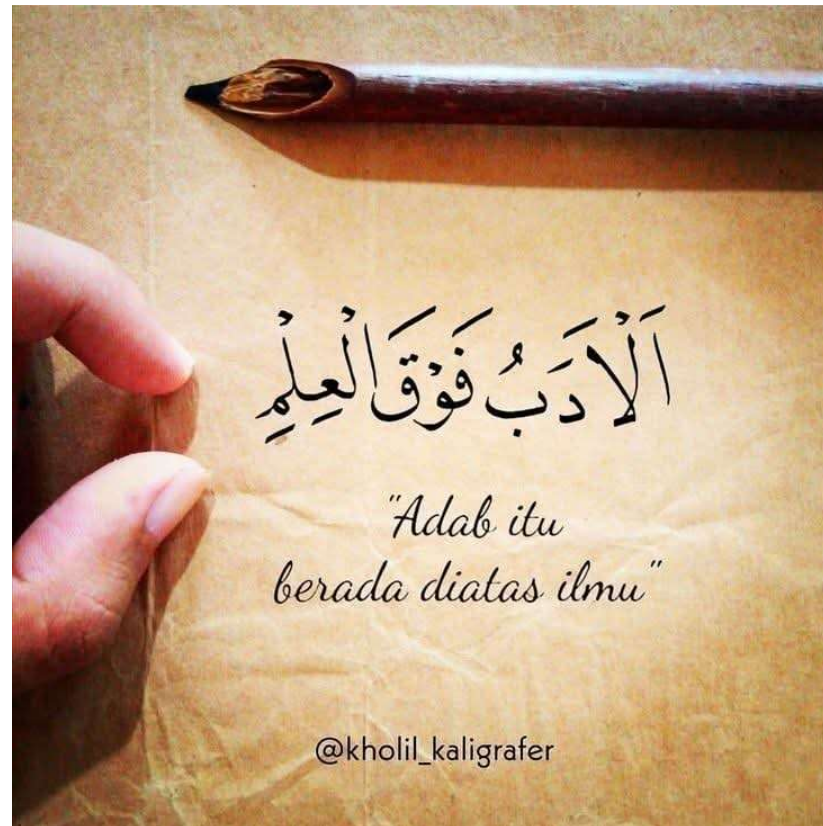 اَلْاَدَبُ فَوْقَ الْعِلِمِ
"Adab itu
berada diatas ilmu"
@kholil_kaligrafer